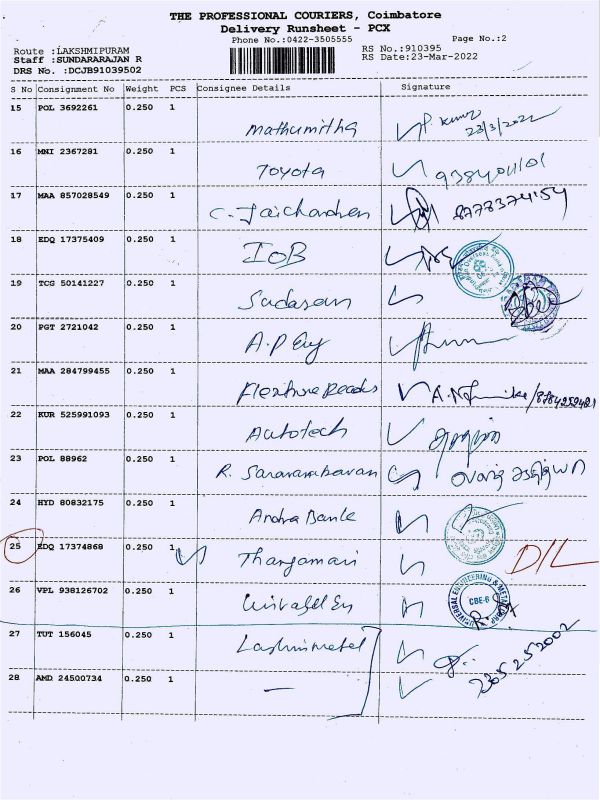 THE PROFESSIONAL COURIERS, Coimbatore
Delivery Runsheet - PCX
Phone No.:0422-3505555 Page No.:2
Route :LAKSHMIPURAM RS No.:910395
Staff :SUNDARARAJAN R RS Date:23-Mar-2022
DRS No. :DCJB91039502
S No Consignment No Weight PCS Consignee Details Signature
15 POL 3692261 0.250 1 Mathumitha P. Kumar 23/3/2022
16 MNI 2367281 0.250 1 Toyota
17 MAA 857028549 0.250 1 C. Jaichandren
18 EDQ 17375409 0.250 1 IOB
19 TCS 50141227 0.250 1 Sudasan
20 PGT 2721042 0.250 1 A.P Eng
21 MAA 284799455 0.250 1
22 KUR 525991093 0.250 1 Autotech
23 POL 88962 0.250 1 R.
24 HYD 80832175 0.250 1 Andra Bank
25 EDQ 17374868 0.250 1 Thangamari D/L
26 VPL 938126702 0.250 1 CBE-6
27 TUT 156045 0.250 1
28 AMD 24500734 0.250 1 —